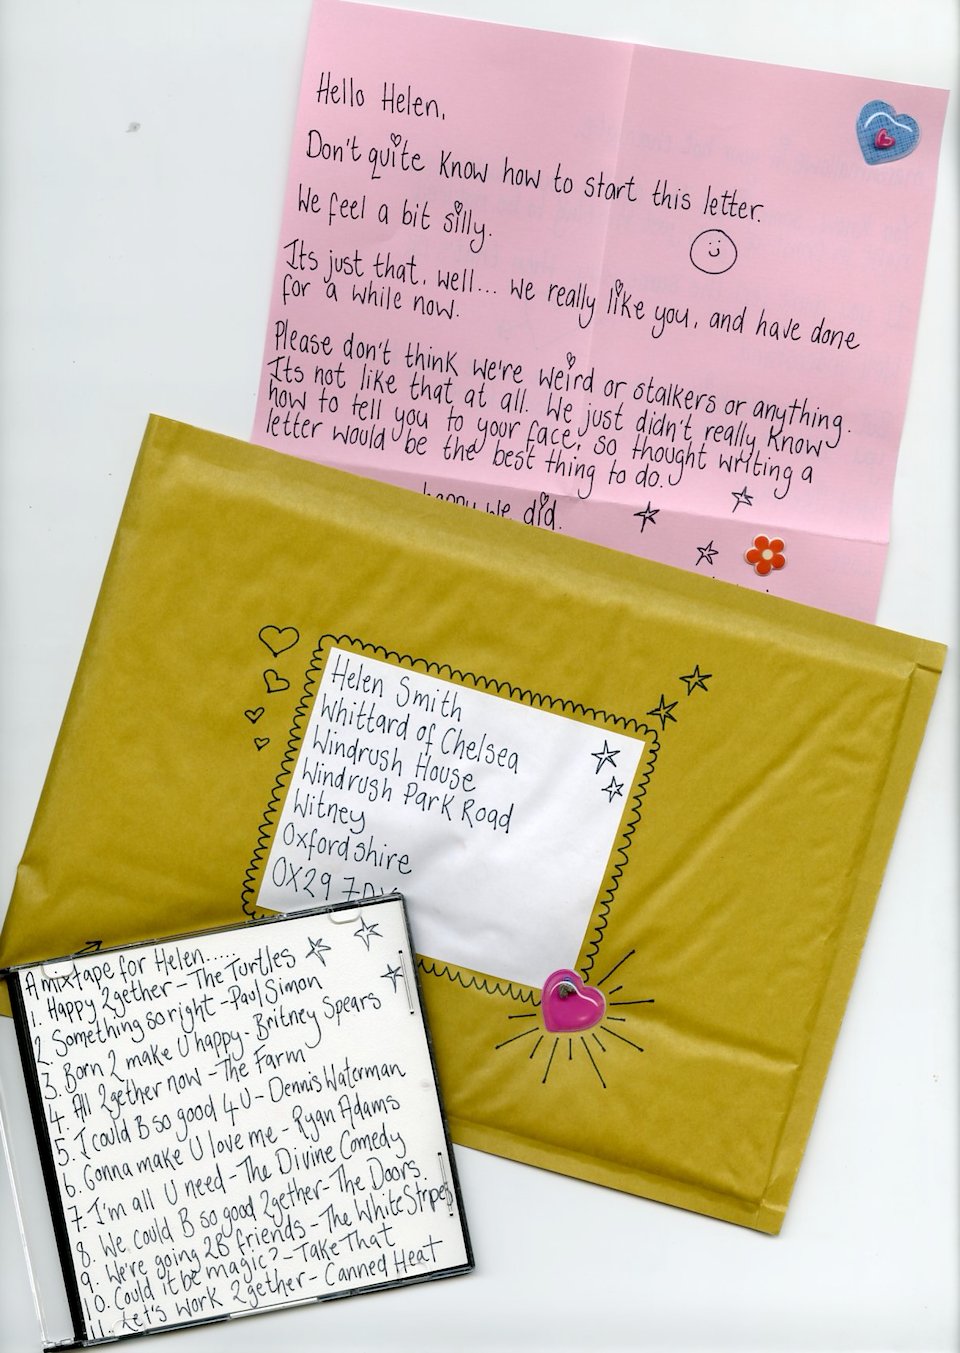 Hello Helen,
Don't quite know how to start this letter.
We feel a bit silly.
Its just that, well... we really like you, and have done
for a while now.
Please don't think we're weird or stalkers or anything.
Its not like that at all. We just didn't really know
how to tell you to your face; so thought writing a
letter would be the best thing to do.
happy we did.
Helen Smith
Whittard of Chelsea
Windrush House
Windrush Park Road
Witney
Oxfordshire
OX29
A mixtape for Helen.....
1. Happy 2gether - The Turtles
2. Something so right - Paul Simon
3. Born 2 make U happy - Britney Spears
4. All 2gether now - The Farm
5. I could B so good 4 U - Dennis Waterman
6. Gonna make U love me - Ryan Adams
7. I'm all U need - The Divine Comedy
8. We could B so good 2gether - The Doors
9. We're going 2B friends - The White Stripes
10. Could it be magic? - Take That
11. Let's work 2gether - Canned Heat